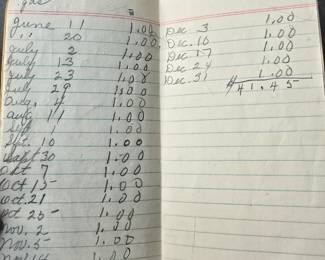 gas
June 11 1.00
" 20 1.00
July 2 1.00
July 13 1.00
July 23 1.00
July 29 1.00
Aug. 4 1.00
Aug 11 1.00
Sept. 1 1.00
Sept. 10 1.00
Sept 30 1.00
Oct 7 1.00
Oct 15 1.00
Oct. 21 1.00
Oct 25 1.00
Nov. 2 1.00
Nov. 5 1.00
Nov. 14 1.00
Dec. 3 1.00
Dec. 10 1.00
Dec. 17 1.00
Dec. 24 1.00
Dec. 31 1.00
41.45